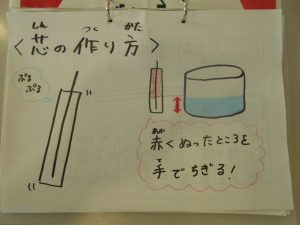 しん つく かた
〈芯の作り方〉
ぷる
ぷる
あか
赤くぬったところを
て
手でちぎる!